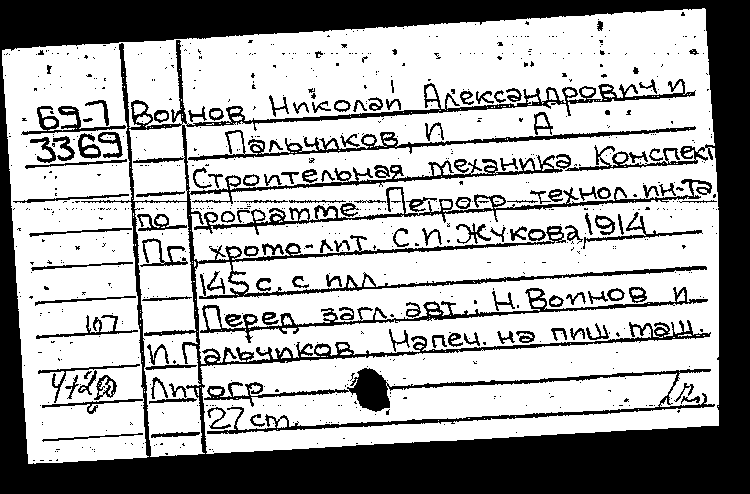 69-7 Воинов, Николай Александрович и
3369 Пальчиков, И А
Строительная механика. Конспект
по программе Петрогр. технол. ин-та.
Пг., хромо-лит. С.П. Жукова, 1914.
145 с. с илл.
Перед загл. авт.: Н. Воинов и
107
И. Пальчиков. Напеч. на пиш. маш.
Литогр.
27 cm.